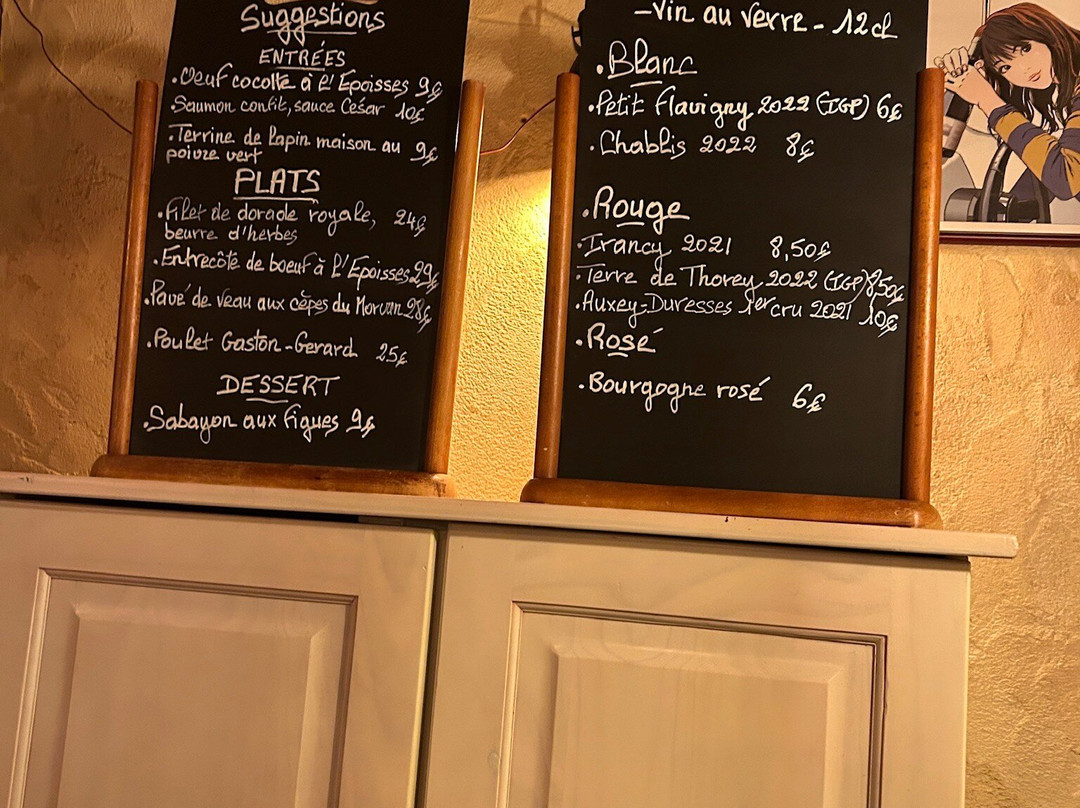 Suggestions
ENTRÉES
. Oeuf cocotte à l'Epoisses 9€
Saumon confit, sauce César 10€
. Terrine de Lapin maison au 9€
poivre vert
PLATS
. Filet de dorade royale, 24€
beurre d'herbes
. Entrecôte de boeuf à l'Epoisses 29€
. Pavé de veau aux cèpes du Morvan 28€
. Poulet Gaston-Gerard 25€
DESSERT
. Sabayon aux figues 9€
- Vin au verre - 12 cl
. Blanc
. Petit Flavigny 2022 (IGP) 6€
. Chablis 2022 8€
. Rouge
. Irancy 2021 8,50€
. Terre de Thorey 2022 (IGP) 8,50€
. Auxey-Duresses 1er cru 2021 10€
. Rosé
. Bourgogne rosé 6€